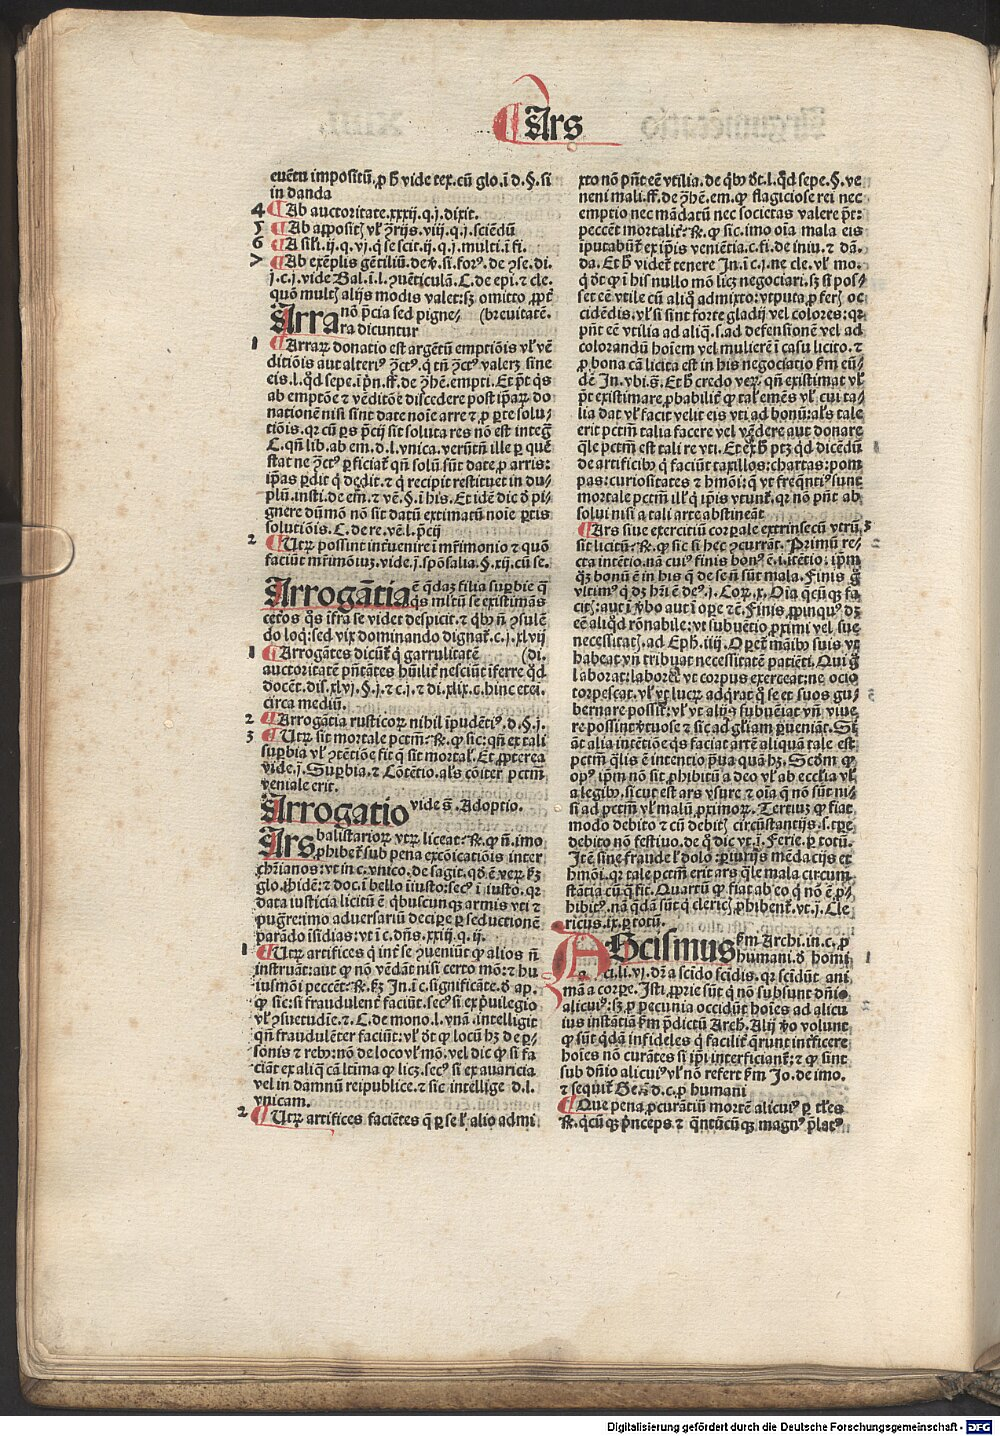 Ars
euētu impositū, ꝓ h̄ vide tex. cū glo. ī d. §. si
in danda
4 Ab auctoritate. xxxij. q. j. dixit.
5 Ab apposit; vl' ꝯ̄rijs. viij. q. j. sciēdū
6 A sil'i. ij. q. vj. q̄ se scit. ij. q. j. multi. ī fi.
7 Ab exēplis gētiliū. de v̄. si. for⁹. de ꝯse. di.
j. c. j. vide Bal. ī. l. ꝯuēticulā. C. de epi. ⁊ cle.
quō mult; alijs modis valet: s; omitto ꝓpt̄
Arra nō p̄cia sed pigne/ (breuitatē.
ra dicuntur
1 Arraꝝ donatio est argētū emptiōis vl' vē
ditiōis aut alteri⁹ ꝯct⁹. q̄ tn̄ ꝯct⁹ valer; sine
eis. l. q̄d sepe. ī p̄n. ff. de ꝯhē. empti. Et p̄t q̄s
ab emptōe ⁊ vēditōe discedere post ip̄aꝝ do
nationē nisi sint date noīe arre ⁊ ꝓ ꝑte solu/
tiōis. qꝛ cū ꝑs p̄cij sit soluta res nō est inteḡ
C. qn̄ lib. ab em. d. l. vnica. verūtn̄ ille ꝑ quē
stat ne ꝯct⁹ ꝑficiat̄ qn̄ solū sūt date, ꝓ arris:
ip̄as ꝑdit q̄ dedit. ⁊ q̄ recipit restituet in du/
plū. insti. de em. ⁊ vē. §. i. his. Et idē dic d̄ pi/
gnere dūmō nō sit datū extimatū noīe ꝑtis
solutiōis. C. de re. vē. l. p̄cij
2 Utꝝ possint intuenire ī mr̄imonio ⁊ quō
faciūt mr̄imōiuz. vide. j. spōsalia. §. xij. cū se.
Arrogātia ē q̄daz filia suꝑbie q̄
q̄s ml'tū se existimās
ceťos q̄s if̄ra se videt despicit. ⁊ q̄b⁹ n̄ ꝯsulē
do loq̄: sed vix dominando dignat̄. c. j. xlvij
1 Arrogātes dicūt̄ q̄ garrulitatē (di.
auctoritatē pn̄tātes hūilit̄ nesciūt īferre q̄d
docēt. dis. xlvj. §. j. ⁊ c. j. ⁊ di. xlix. c. hinc etei.
circa mediū.
2 Arrogātia rusticoꝝ nihil īpudēti⁹. d. §. j.
3 Utꝝ sit mortale pctm̄: ℟. ꝙ sic: qn̄ ex tali
suꝑbia vl' ꝯtētiōe fit q̄ sit mortal'. Et ꝓpterea
vide. j. Suꝑbia. ⁊ Cōtētio. al's cōiter pctm̄
veniale erit.
Arrogatio vide s̄. Adoptio.
Ars balistarioꝝ vtꝝ liceat: ℟. ꝙ n̄. imo
ꝓhibet̄ sub pena excōicatiōis inter
xp̄ianos: vt in c. vnico. de sagit. qd̄ ē veꝝ s̄m
glo. ibidē: ⁊ doc. ī bello iiusto: sec⁹ ī iusto. qꝛ
data iusticia licitū ē q̄buscunq; armis vti ⁊
pug̃re: imo aduersariū deciꝑe ꝑ seductionē
parādo īsidias: vt ī c. dn̄s. xxiij. q. ij.
1 Utꝝ artifices q̄ int̄ se ꝯueniūt ꝙ alios n̄
instruāt: aut ꝙ nō vēdāt nisi certo mō: ⁊ hu
iusmōi peccēt: ℟. s̄m In. ī c. significāte. d̄ ap.
ꝙ sic: si fraudulent̄ faciūt. sec⁹ si ex p̄uilegio
vl' ꝯsuetudīe. ⁊. C. de mono. l. vnā. intelligit
qn̄ fraudulēter faciūt: vl' d̄t ꝙ locū h; de ꝑ/
sonis ⁊ reb⁹: nō de loco vl' mō. vel dic ꝙ si fa
ciāt ex aliq̄ cā l'tima ꝙ lic;. sec⁹ si ex auaricia
vel in damnū reipublice. ⁊ sic intellige d. l.
vnicam.
2 Utꝝ artifices faciētes q̄ ꝑ se l' alio admi
xto nō pn̄t eē vtilia. de q̄b⁹ d̄t. l. q̄d sepe. §. ve
neni mali. ff. de ꝯhē. em. ꝙ flagiciose rei nec
emptio nec mādatū nec societas valere p̄t:
peccēt mortalit̄: ℟. ꝙ sic. imo oīa mala eis
iputabūt̄ ex ip̄is veniētia. c. fi. de iniu. ⁊ dā.
da. Et h̄ videt̄ tenere In. ī c. j. ne cle. vl' mo.
q̄ d̄t ꝙ ī his nullo mō lic; negociari. s; si pos/
set eē vtile cū aliq̄ admixto: vtputa ꝓ fer; oc
cidēdis. vl' si sint forte gladij vel colores: qꝛ
pn̄t eē vtilia ad aliq̄. s. ad defensionē vel ad
colorandū hoīem vel mulierē ī casu licito. ⁊
ꝓ bona cā licita est in his negociatio s̄m eū/
dē In. vbi. s̄. Et h̄ credo veꝝ. qn̄ existimat vl'
p̄t existimare ꝓbabilit̄ ꝙ tal' emēs vl' cui ta/
lia dat vl' facit velit eis vti ad bonū: al's tale
erit pctm̄ talia facere vel vēdere aut donare
q̄le pctm̄ est tali re vti. Et ex h̄ pt; q̄d dicēdū
de artificib⁹ q̄ faciūt taxillos: chartas: pom
pas: curiositates ⁊ hmōi: q̄ vt freq̄nti⁹ sunt
mortale pctm̄ ill' q̄ ip̄is vtunt̄. qꝛ nō pn̄t ab
solui nisi a tali arte abstineāt
3 Ars siue exercitiū corꝑale extrinsecū vtrū
sit licitū: ℟. ꝙ sic si hec ꝯcurrāt. Primū re/
cta intētio. nā cui⁹ finis bon⁹ ē. i. itētio: ip̄m
q; bonū ē in his q̄ de se n̄ sūt mala. Finis g̊
vltim⁹ q̄ d; h̄ri ē de⁹. j. Coꝝ. x. Oīa q̄cūq; fa
cit;: aut ī v̄bo aut ī oꝑe ⁊c̄. Finis ꝓpinqu⁹ d;
eē aliq̄d rōnabile: vt subuētio ꝓximi vel sue
necessitat;. ad Eph. iiij. Oꝑet̄ māib⁹ suis vt
habeat vn̄ tribuat necessitatē patiēti. Qui g̊
laborat: laboret vt corpus exerceat: ne ocio
torpescat. vl' vt lucꝝ adq̄rat q̄ se et suos gu/
bernare possit: vl' vt alijs subueniat vn̄ viue
re possint v̄tuose ⁊ sic ad gl'iam ꝑueniāt. Si
āt alia intētiōe q̄s faciat artē aliquā tale est
pctm̄ q̄lis ē intentio p̄ua quā h;. Scd̄m ꝙ
op⁹ ip̄m nō sit ꝓhibitū a deo vl' ab ecclīa vl'
a legib⁹. sicut est ars vsure ⁊ oīa q̄ nō sūt ni/
si ad pctm̄ vl' malū ꝓximoꝝ. Tertiuz ꝙ fiat
modo debito ⁊ cū debit; circūstantijs. l. tꝑe
debito nō festiuo. de q̄ dic vt. j. Ferie. ꝑ totū.
Itē sine fraude l' dolo: ꝑiurijs mēdacijs et
hmōi. qꝛ tale pctm̄ erit ars q̄le mala circum
stātia cū q̄ fit. Quartū ꝙ fiat ab eo q̄ nō ē ꝓ/
hibit⁹. nā q̄dā sūt q̄ cleric; ꝓhibent̄. vt. j. Cle
ricus. ix. ꝑ totū.
AScisimus s̄m Archi. in. c. ꝓ
humani. d̄ homi 1
ci. li. vj. dr̄ a scido scidis. qꝛ scidūt ani
mā a corꝑe. Isti ꝓprie sūt q̄ nō subsunt dn̄io
alicui⁹: s; ꝓ pecunia occidūt hoīes ad alicu
ius instātiā s̄m p̄dictū Arch. Alij v̄o volunt
ꝙ sūt q̄dā infideles q̄ facilit̄ q̄runt int̄ficere
hoīes nō curātes si ip̄i interficiant̄: ⁊ ꝙ sint
sub dn̄io alicui⁹ vl' nō refert s̄m Jo. de imo.
⁊ sequit̄ Ge. ī d. c. ꝓ humani
Que pena ꝓcurātiū mortē alicui⁹ ꝑ tl'es
℟. q̄cūq; p̄nceps. ⁊ q̄ntūcūq; magn⁹ p̄lat⁹
Digitalisierung gefördert durch die Deutsche Forschungsgemeinschaft - DFG